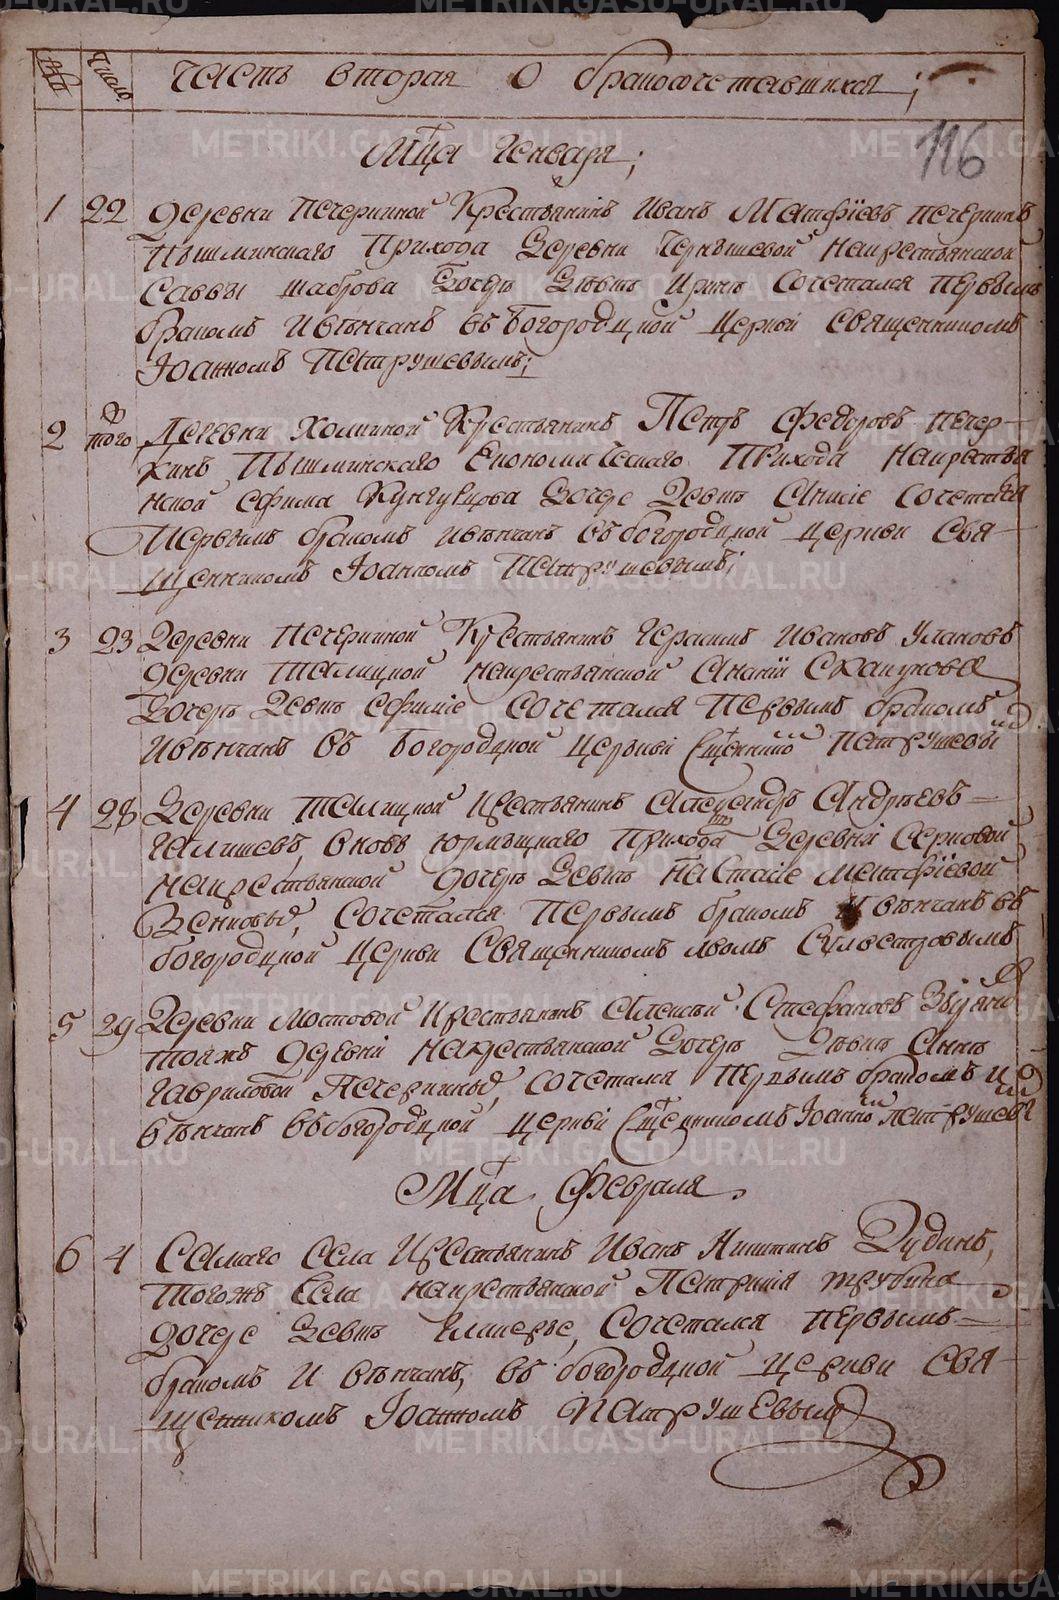 Число
Часть вторая О бракосочетавшихся;
116
Мца Генваря;
1 22 Деревни Печеркиной Крестьянинъ Иванъ Матфіевъ Печеркинъ
Пышминскаго Прихода Деревни Чернышевой на крестьянской
Саввы Шаброва Дочерѣ Девкѣ Иринѣ Сочетался Первымъ
бракомъ И вѣнчанъ въ Богородцкой Церкви священникомъ
Іоанномъ Петрушевымъ;
2 того Деревни Холкиной Крестьянинъ Петръ Федоровъ Печер-
кинъ Пышминскаго Економическаго Прихода На крестья
нской Ефима Кунгурцова Дочере Девкѣ Анисіе сочетался
Первымъ бракомъ и вѣнчанъ въ богородцкой Церкви Свя-
щенникомъ Іоанномъ Петрушевымъ;
3 23 Деревни Печеркиной Крестьянинъ Герасимъ Ивановъ Улановъ
деревни Талицкой на крестьянской Ананіи Скакунова
Дочерѣ Девкѣ Ефиміе сочетался Первымъ бракомъ
И вѣнчанъ въ Богородцкой Церькви Сщенникомъ Петрушевы
4 28 Деревни Талицкой Крестьянинъ Александръ Андреевъ
Галишевъ, вновь Юрмыцкаго Прихода Деревни Серковой
На крестьянской дочерѣ Девкѣ Настасіе Матфіевой
Зенковыхъ, Сочетался Первымъ бракомъ И вѣнчанъ въ
богородцкой Церкви Священникомъ Львомъ Сильвестровымъ
5 29 Деревни Мостовой Крестьянинъ Алексѣй Стефановъ
тояжъ деревни На крестьянской Дочерѣ Девкѣ Аннѣ
Гавриловой Печеркиныхъ, сочетался Первымъ бракомъ И
вѣнчанъ въ богородцкой Церкви Сщенникомъ Іоанномъ Петрушевы
Мца Февраля
6 4 Самаго Села Крестьянинъ Иванъ Никитинъ Дудинъ,
Тогожъ Села На крестьянской Петрикія Трубина
дочере Девкѣ Гликерье, Сочетался Первымъ
бракомъ И вѣнчанъ, въ богородцкой Церкви Свя-
щенникомъ Іоанномъ Патрушевымъ
METRIKI.GASO-URAL.RU